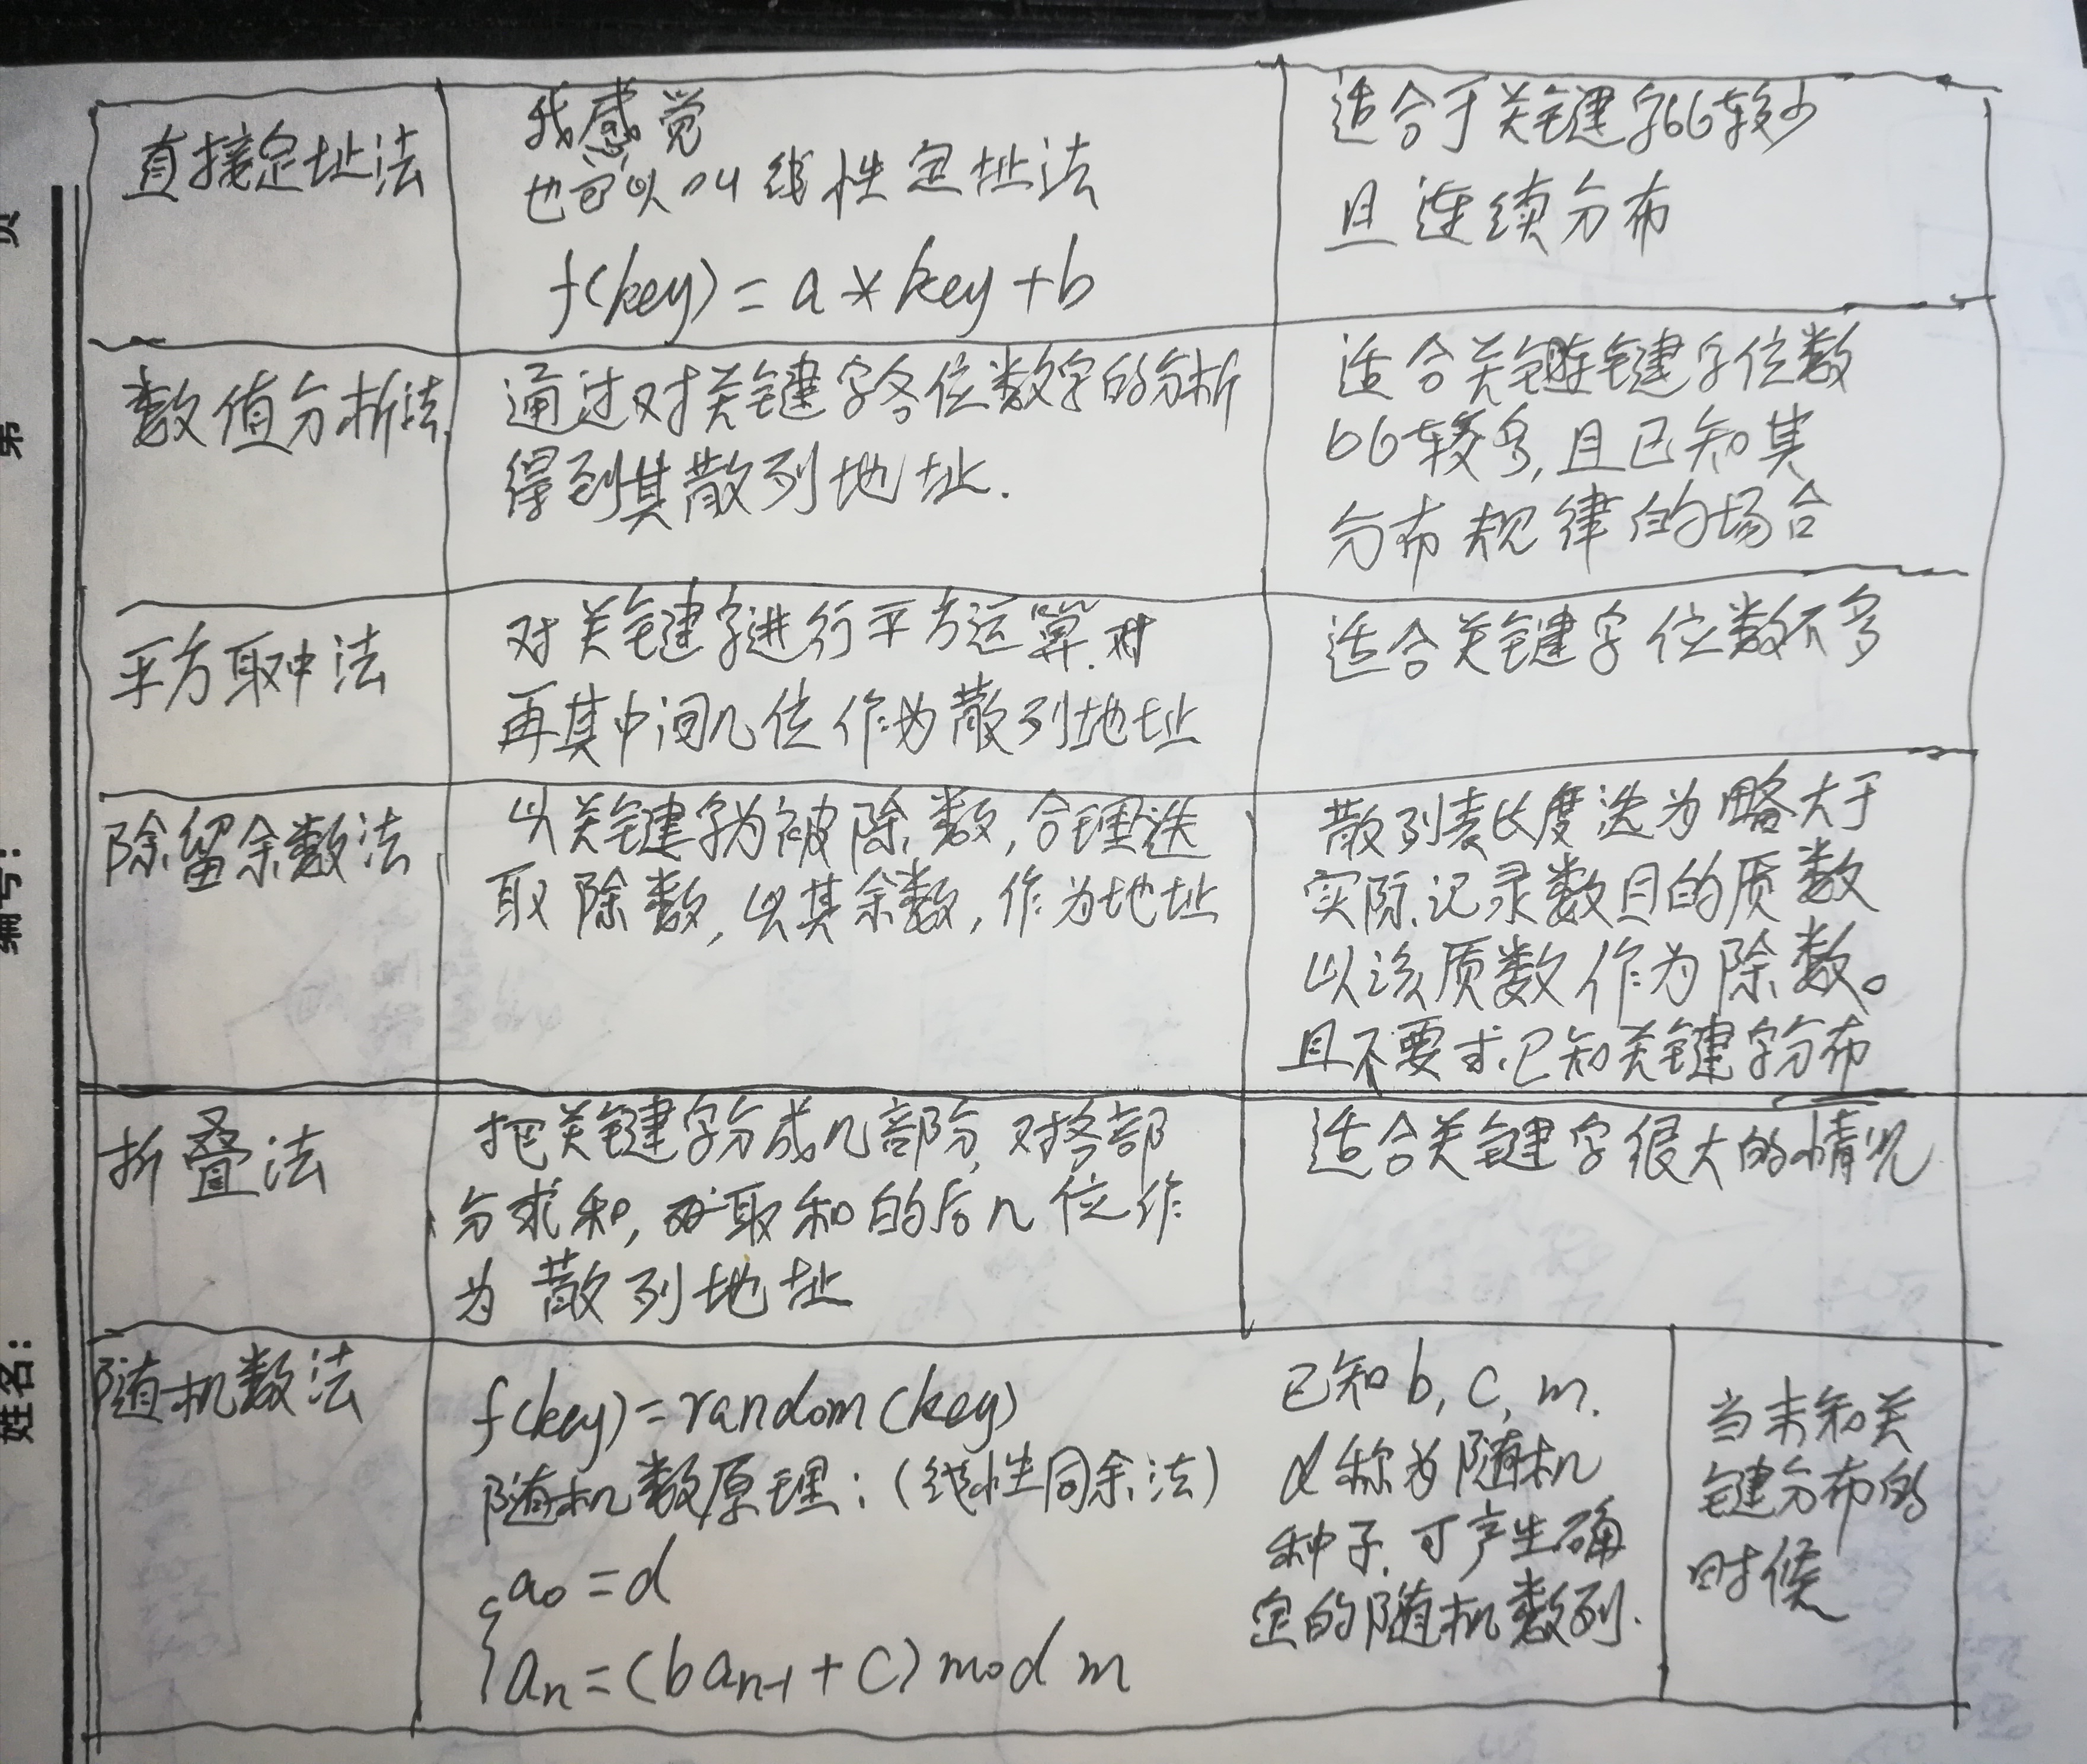 直接定址法
我感觉
也可以叫线性定址法
f(key) = a * key + b
适合于关键字比较少
且连续分布
数值分析法
通过对关键字各位数字的分析
得到其散列地址.
适合关键字位数
比较多,且已知其
分布规律的场合
平方取中法
对关键字进行平方运算.
再其中间几位作为散列地址
适合关键字位数不多
除留余数法
以关键字为被除数,合理选
取除数,以其余数,作为地址
散列表长度选为略大于
实际记录数目的质数
以该质数作为除数。
且不要求已知关键字分布
折叠法
把关键字分成几部分,对各部
分求和,取和的后几位作
为散列地址
适合关键字很大的情况
随机数法
f(key) = random(key)
随机数原理:(线性同余法)
{ a₀ = d
aₙ = (baₙ₋₁ + c) mod m
已知b, c, m.
d称为随机
种子.可产生确
定的随机数列.
当未知关
键分布的
时候
页
编号:
姓名: